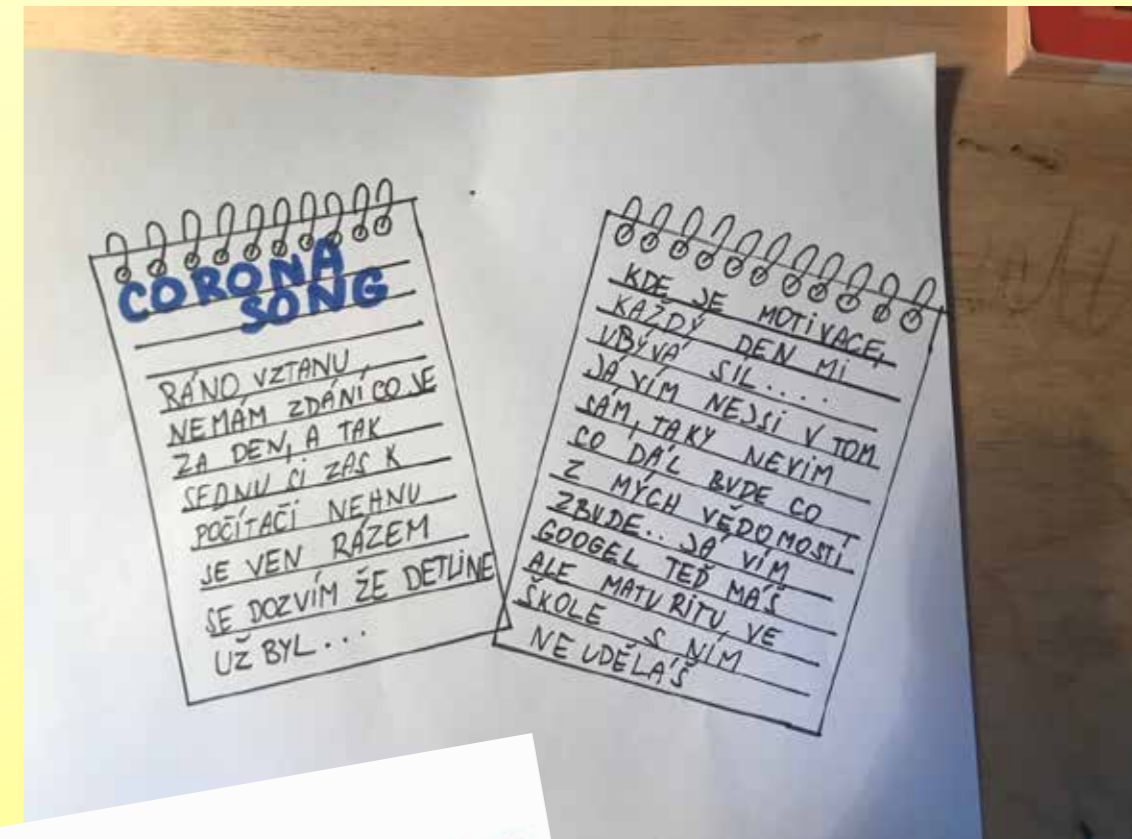 CORONA
SONG
RÁNO VZTANU,
NEMÁM ZDÁNÍ CO JE
ZA DEN, A TAK
SEDNU SI ZAS K
POČÍTAČI NEHNU
JE VEN RÁZEM
SE DOZVÍM ŽE DETLINE
UŽ BYL...
KDE JE MOTIVACE,
KAŽDÝ DEN MI
UBÝVÁ SIL...
JÁ VÍM NEJSI V TOM
SÁM, TAKY NEVÍM
CO DÁL BUDE CO
Z MÝCH VĚDOMOSTÍ
ZBUDE.. JÁ VÍM
GOOGEL TEĎ MÁŠ
ALE MATURITU VE
ŠKOLE S NÍM
NEUDĚLÁŠ